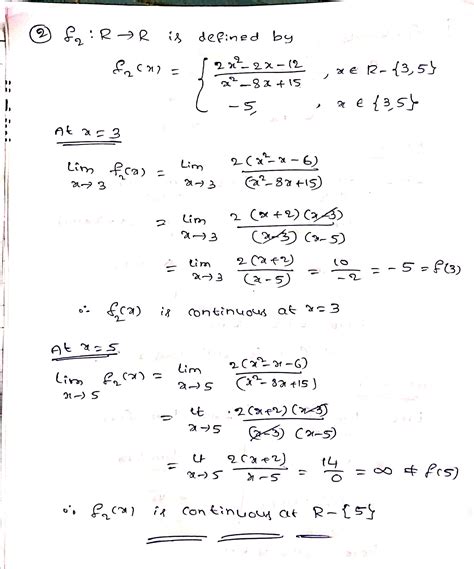 ② f₂ : R → R is defined by
f₂(x) = { (2x²-2x-12)/(x²-8x+15) , x ∈ R-{3,5}
-5 , x ∈ {3,5}
At x = 3
Lim x→3 f₂(x) = Lim x→3 2(x²-x-6)/(x²-8x+15)
= Lim x→3 2(x+2)(x-3)/(x-3)(x-5)
= Lim x→3 2(x+2)/(x-5) = 10/-2 = -5 = f(3)
∴ f₂(x) is continuous at x=3
At x=5
Lim x→5 f₂(x) = Lim x→5 2(x²-x-6)/(x²-8x+15)
= Lt x→5 2(x+2)(x-3)/(x-3)(x-5)
= Lt x→5 2(x+2)/x-5 = 14/0 = ∞ ≠ f(5)
∴ f₂(x) is continuous at R-{5}